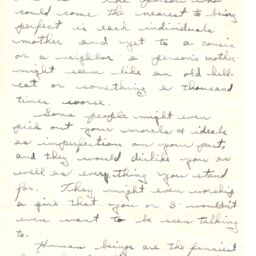 The person who
could come the nearest to being
perfect is each individuals
mother and yet to a cousin
or a neighbor a person's mother
might seem like an old hell-
cat or something a thousand
times worse.
Some people might even
pick out your morals & ideals
as imperfection on your part,
and they would dislike you as
well as everything you stand
for. They might even worship
a girl that you or I wouldn't
even want to be seen talking
to.
Human beings are the funniest